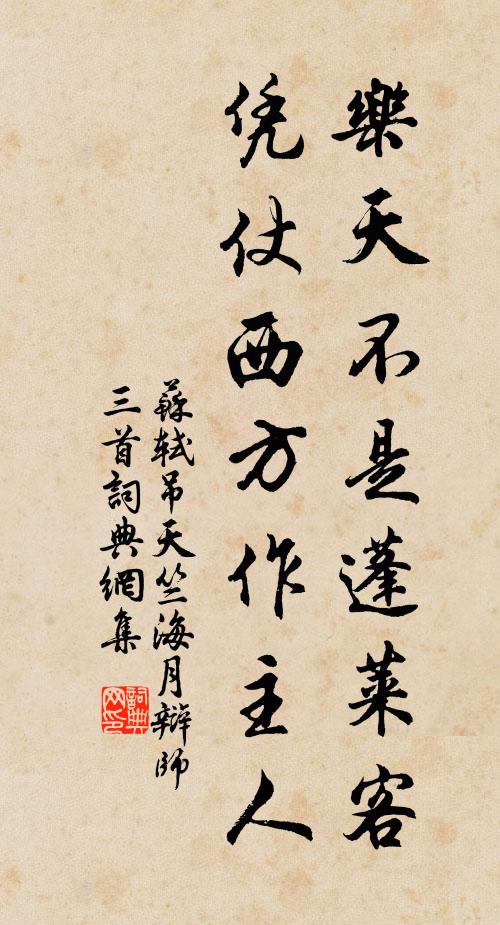 樂天不是蓬萊客
凭仗西方作主人
蘇軾吊天竺海月辯師
三首詞典網集
詞典網印